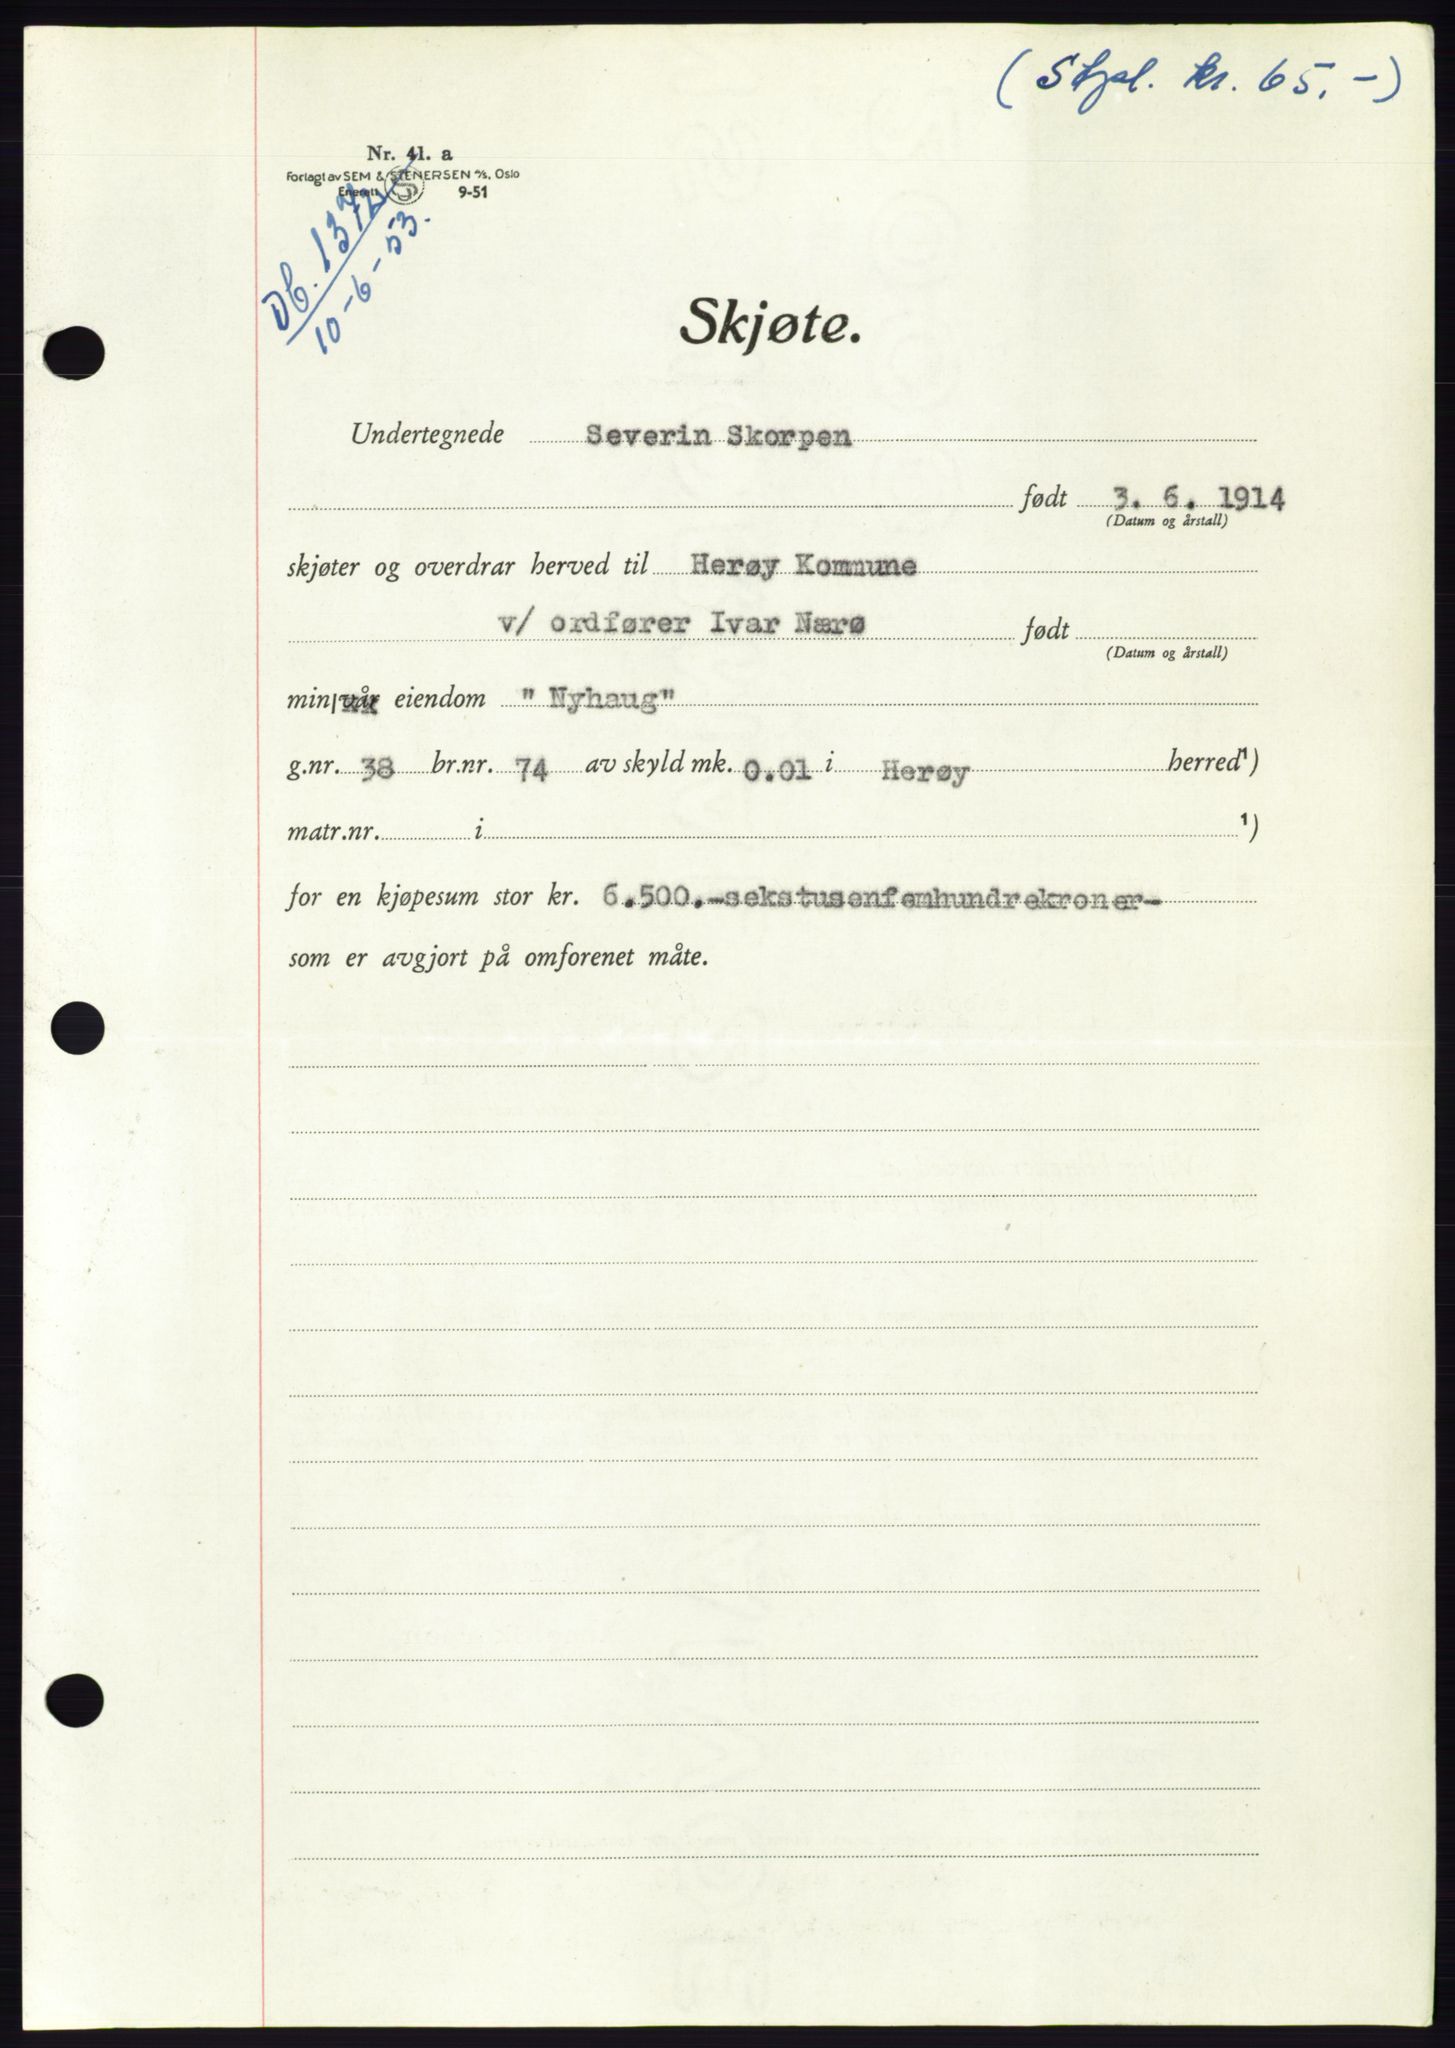 (Stpl. kr. 65.-)
Nr. 41. a
Forlagt av SEM & STENERSEN A/S, Oslo
Enerett S 9-51
Db. 1372
10-6-53.
Skjøte.
Undertegnede Severin Skorpen
født 3. 6. 1914
(Datum og årstall)
skjøter og overdrar herved til Herøy Kommune
v/ ordfører Ivar Nærø født
(Datum og årstall)
min/vår eiendom " Nyhaug"
g.nr. 38 br.nr. 74 av skyld mk. 0.01 i Herøy herred¹)
matr.nr. i ¹)
for en kjøpesum stor kr. 6.500.-sekstusenfemhundrekroner-
som er avgjort på omforenet måte.